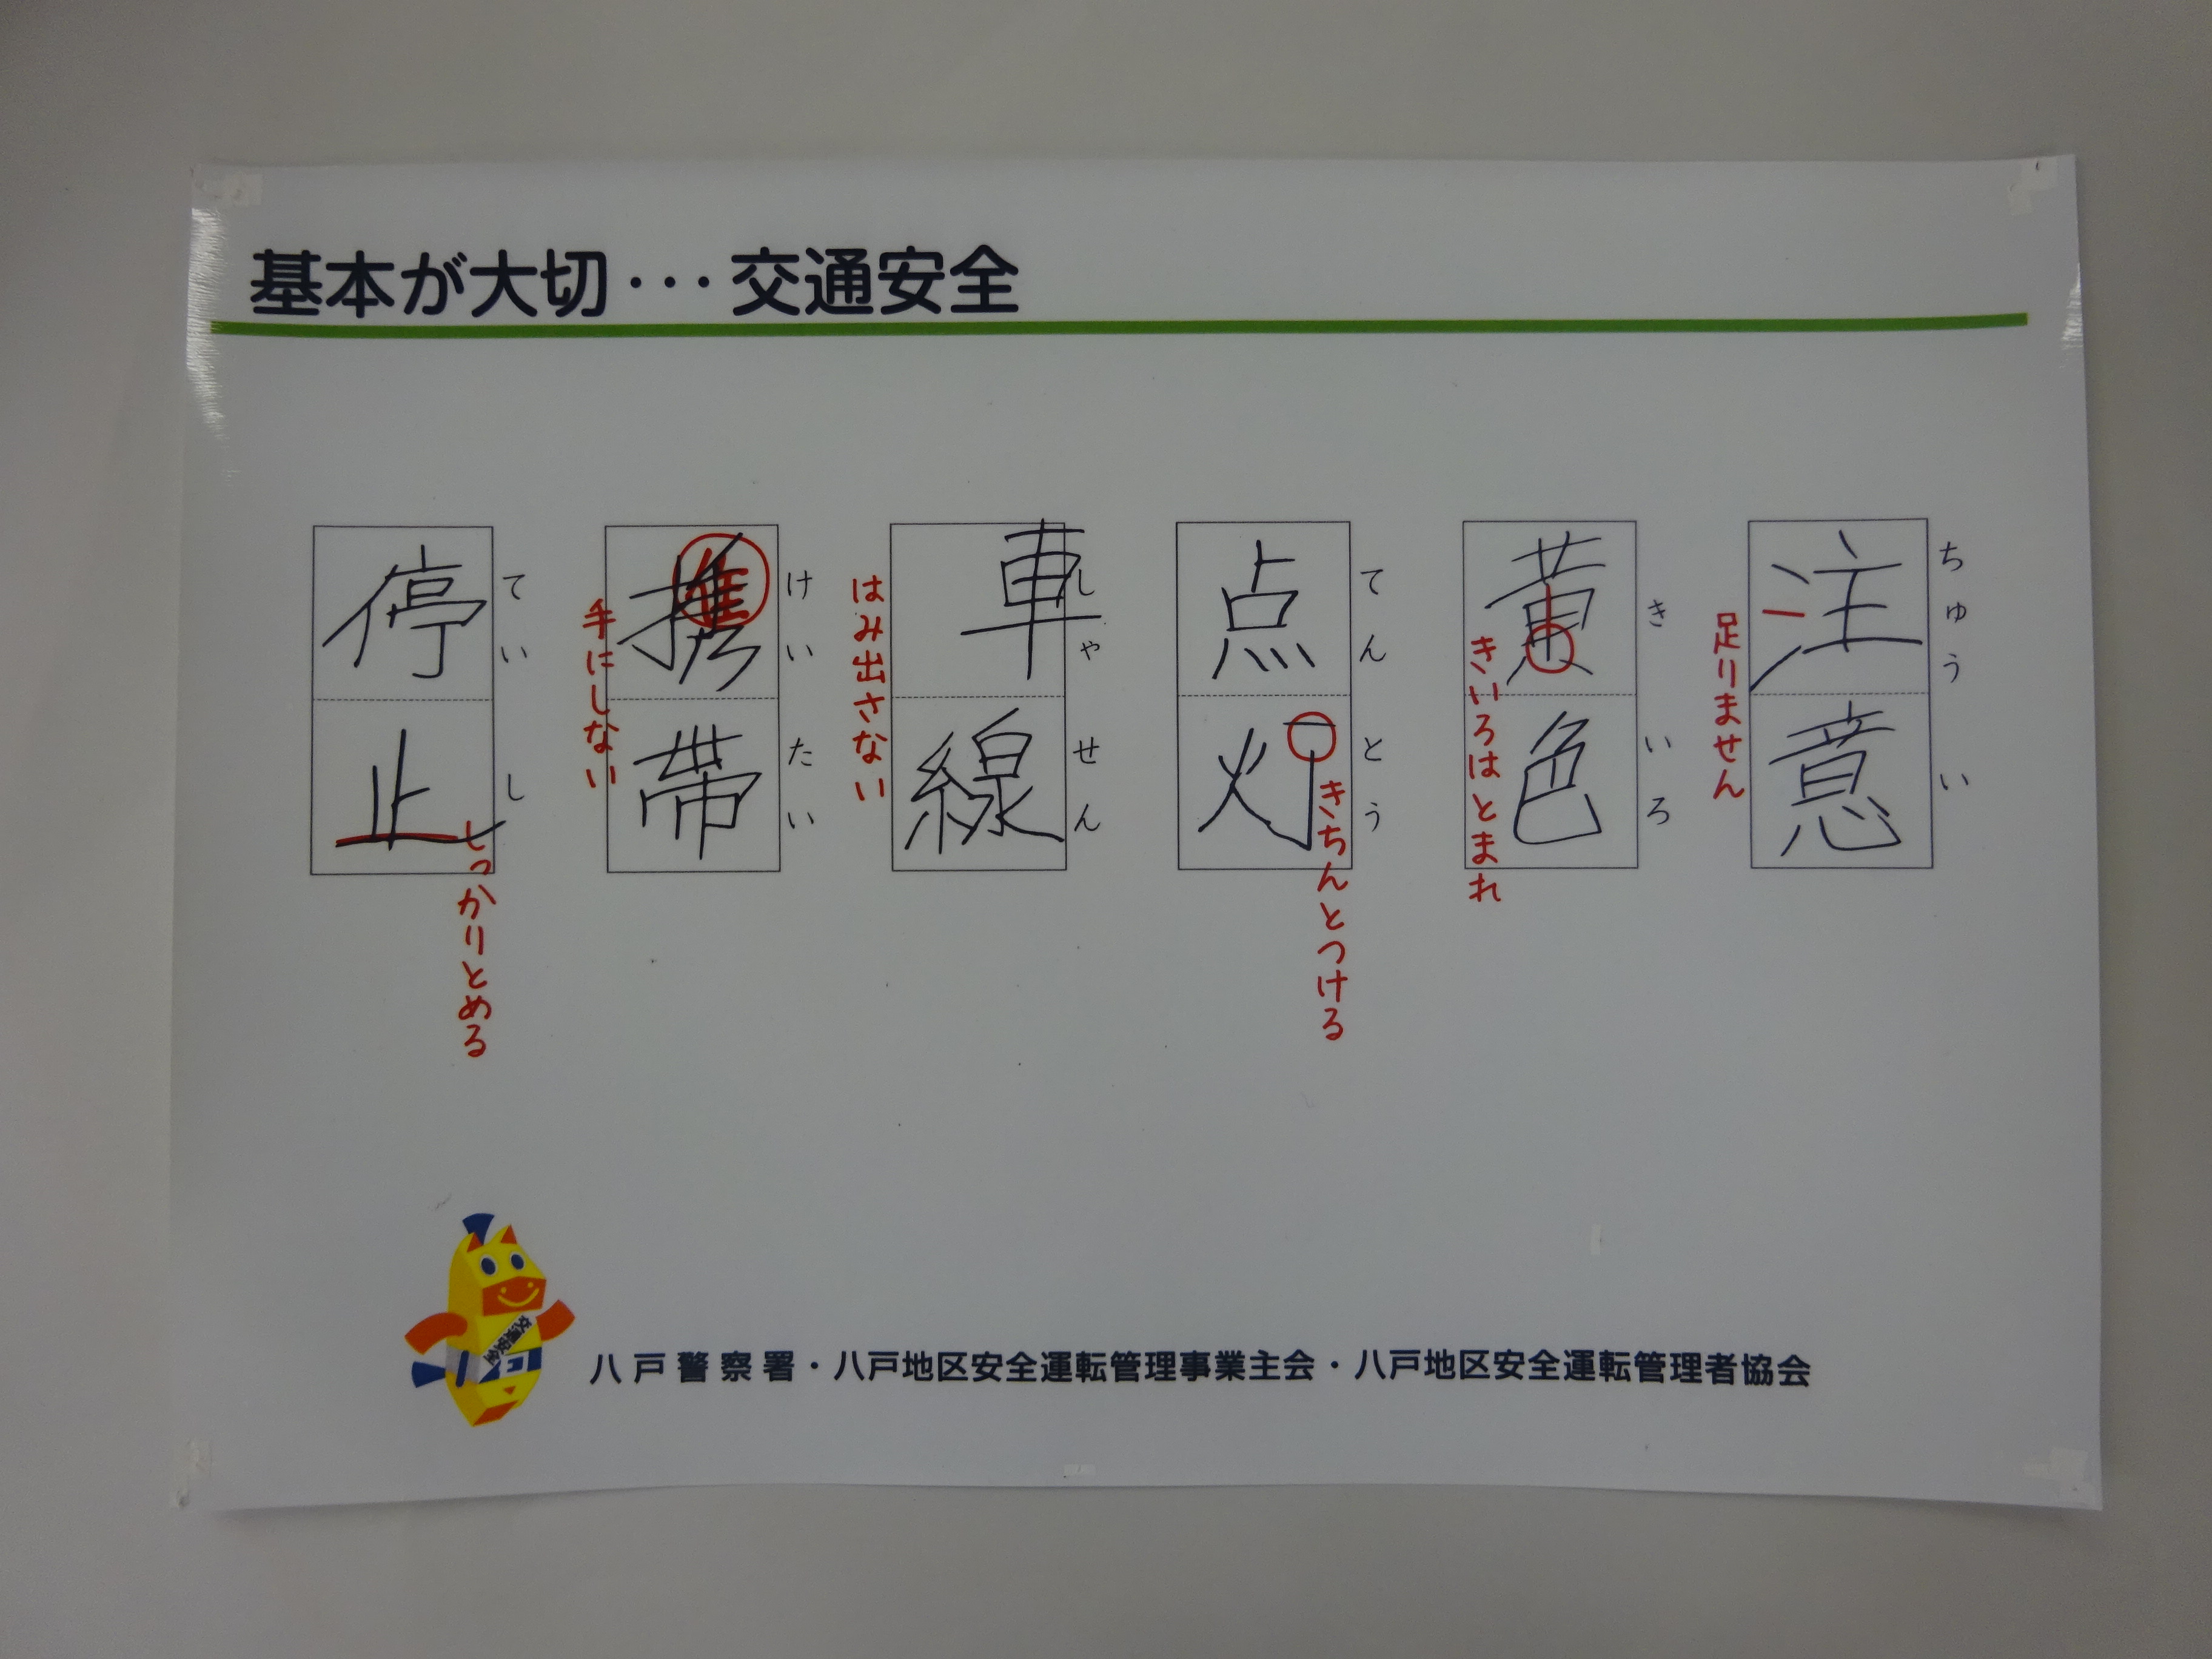 基本が大切・・・交通安全
ちゅうい
注意
足りません
きいろ
黄色
きいろはとまれ
てんとう
点灯
きちんとつける
しゃせん
車線
はみ出さない
けいたい
携帯
手にしない
ていし
停止
しっかりとめる
交通安全
八戸警察署・八戸地区安全運転管理事業主会・八戸地区安全運転管理者協会